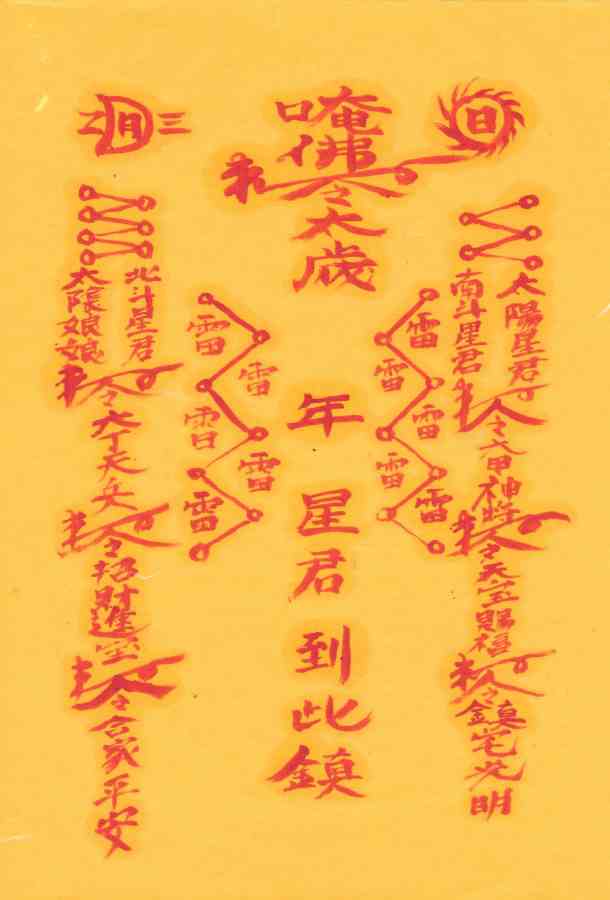 日
太陽星君
南斗星君
勅令六甲神將
勅令天官賜福
勅令鎮宅光明
雷
雷
雷
雷
雷
唵佛勅令太歲
年
星君到此鎮
雷
雷
雷
雷
雷
月
三
北斗星君
太陰娘娘
勅令六丁天兵
勅令招財進宝
勅令合家平安